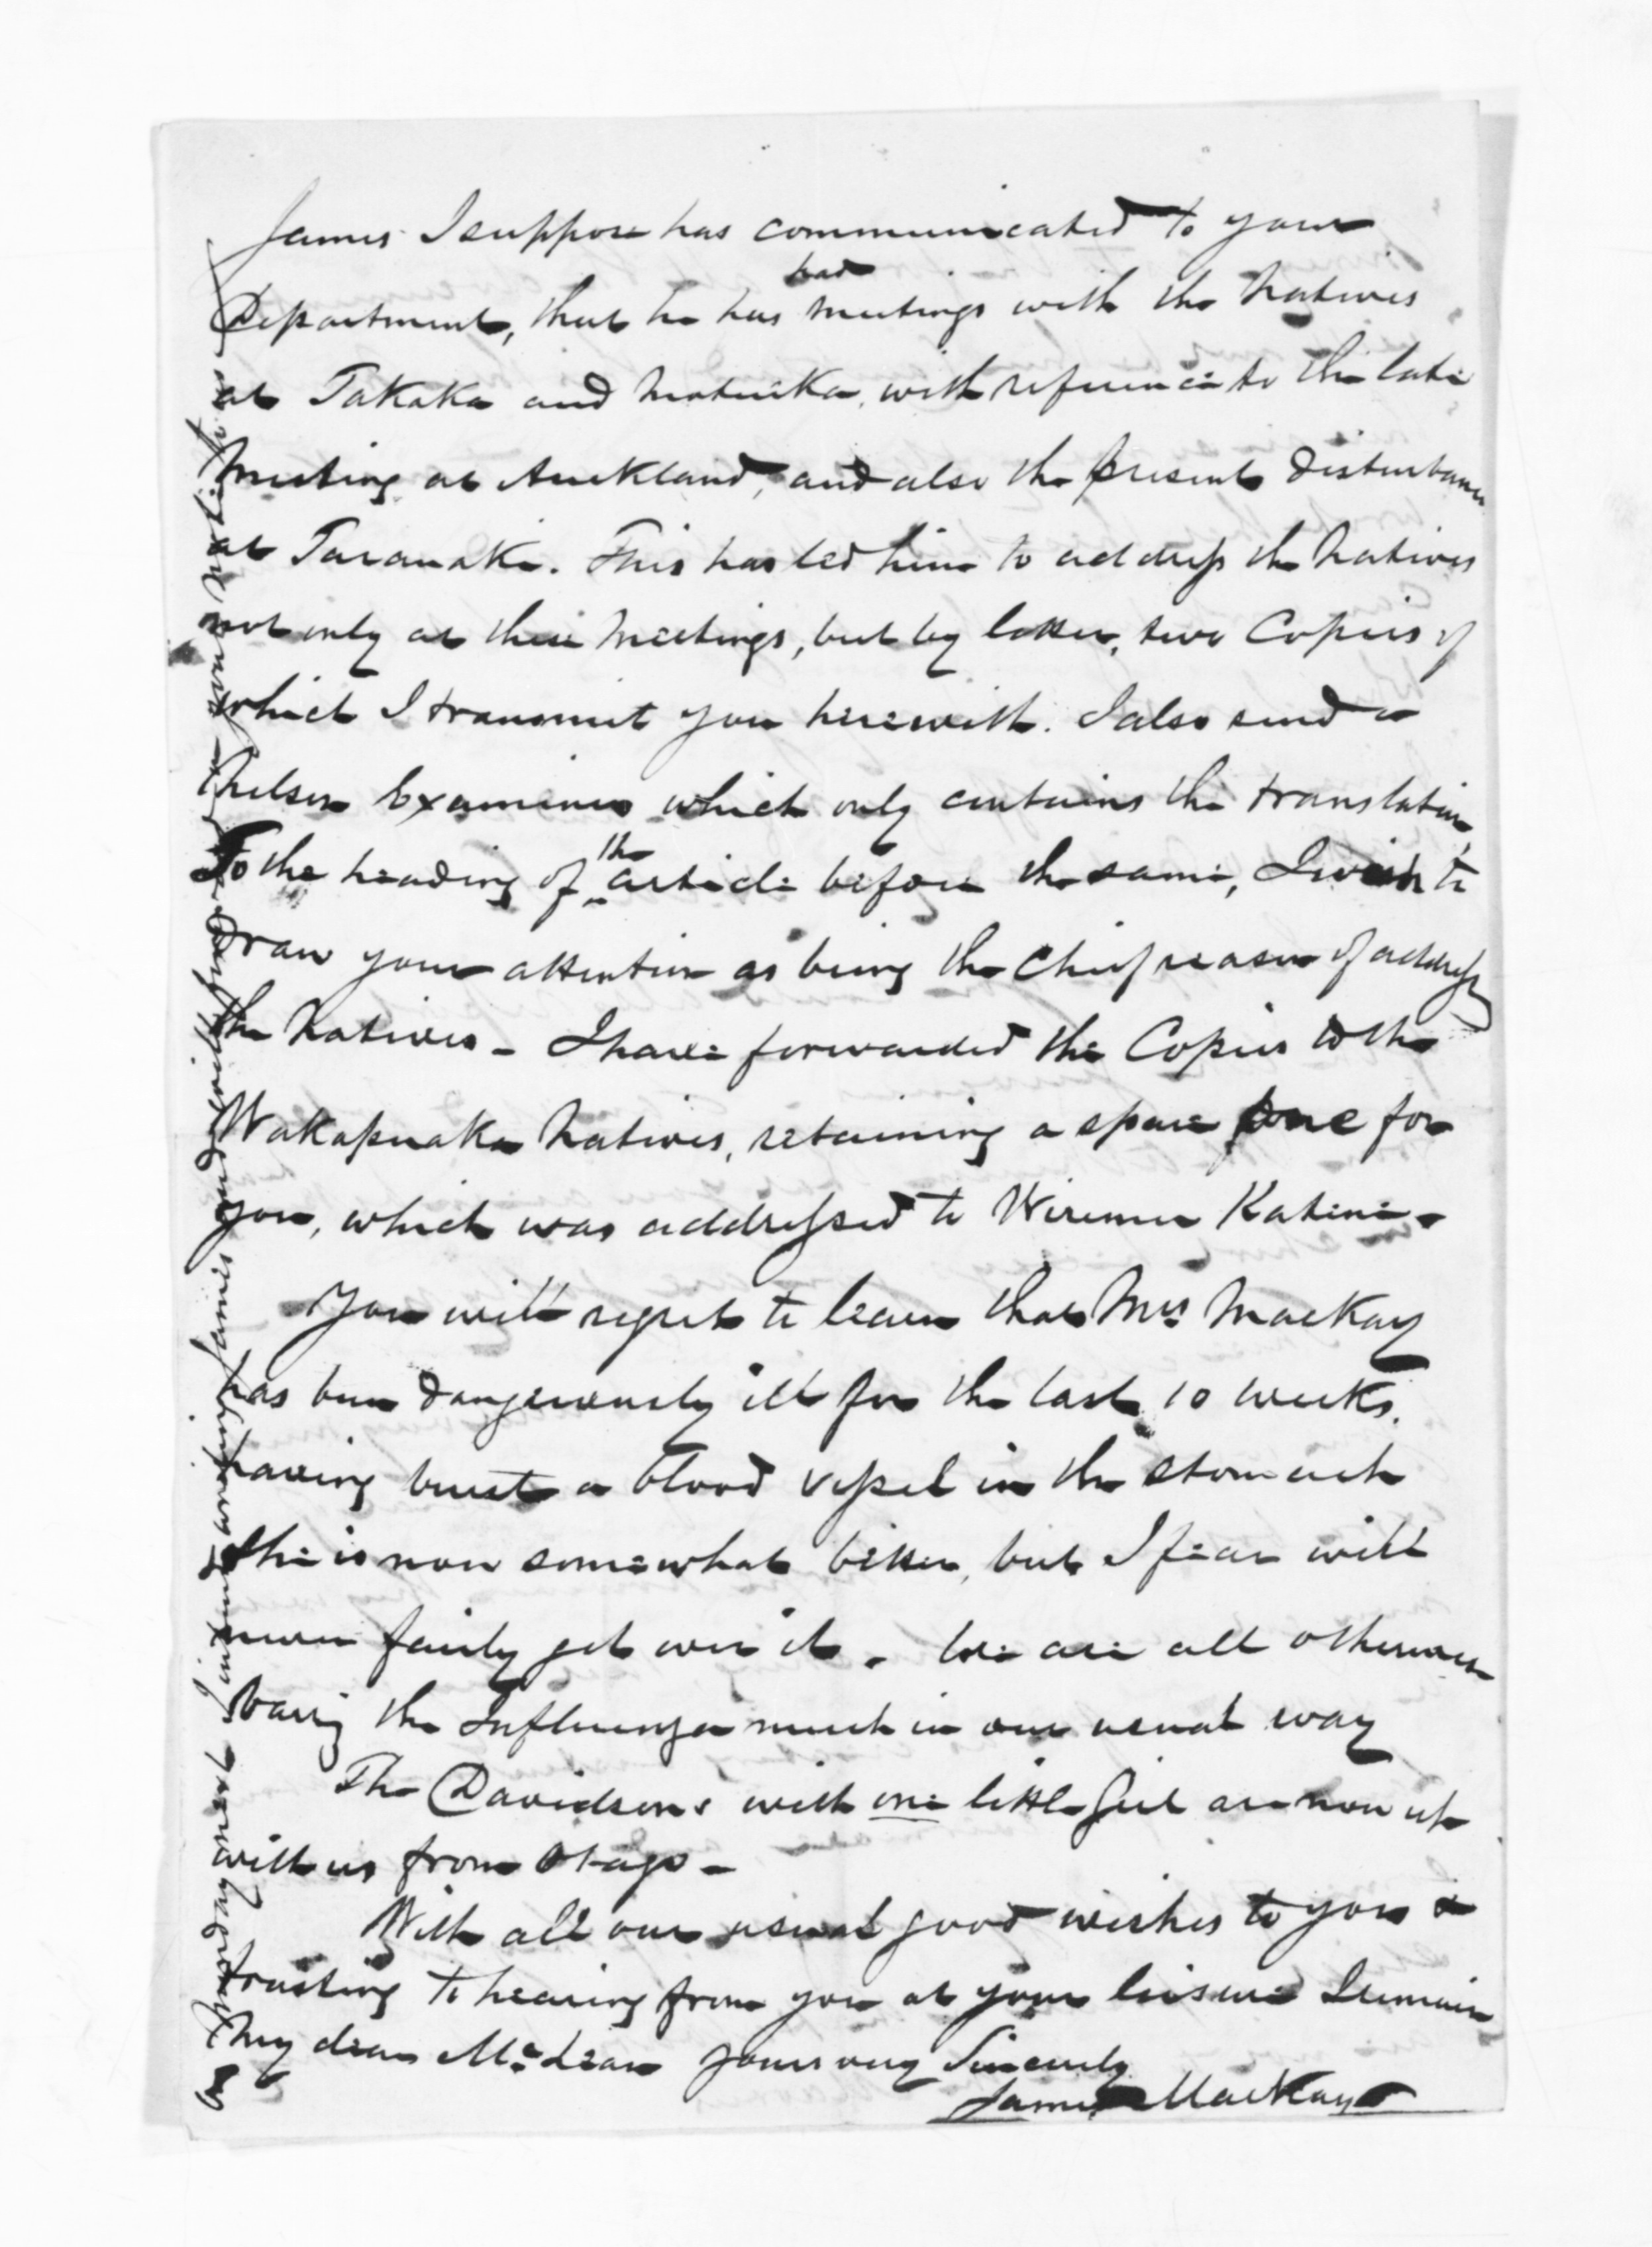 James I suppose has communicated to your
Department, that he has had meetings with the Natives
at Takaka and Motueka, with reference to the late
Meeting at Auckland, and also the present disturbance
at Taranaki. This has led him to address the Natives
not only at these Meetings, but by letter, two Copies of
which I transmit you herewith. I also send a
Nelson Examiner which only contains the translation,
To the heading of the article before the same, I wish to
draw your attention as being the Chief reason of address
the Natives - I have forwarded the Copies to the
Wakapuaka Natives, retaining a spare one for
you, which was addressed to Wiremu Katene -
You will regret to learn that Mrs Mackay
has been dangerously ill for the last 10 weeks,
having burst a blood vessel in the stomach
She is now somewhat better, but I fear will
never fairly get over it. We are all otherwise
barring the Influenza much in our usual way
The Davidsons with one little Girl are now up
with us from Otago -
With all our usual good wishes to you &
trusting to hearing from you at your leisure I remain
My dear McLean Yours very Sincerely
James Mackay
On Monday next I intend writing James and will